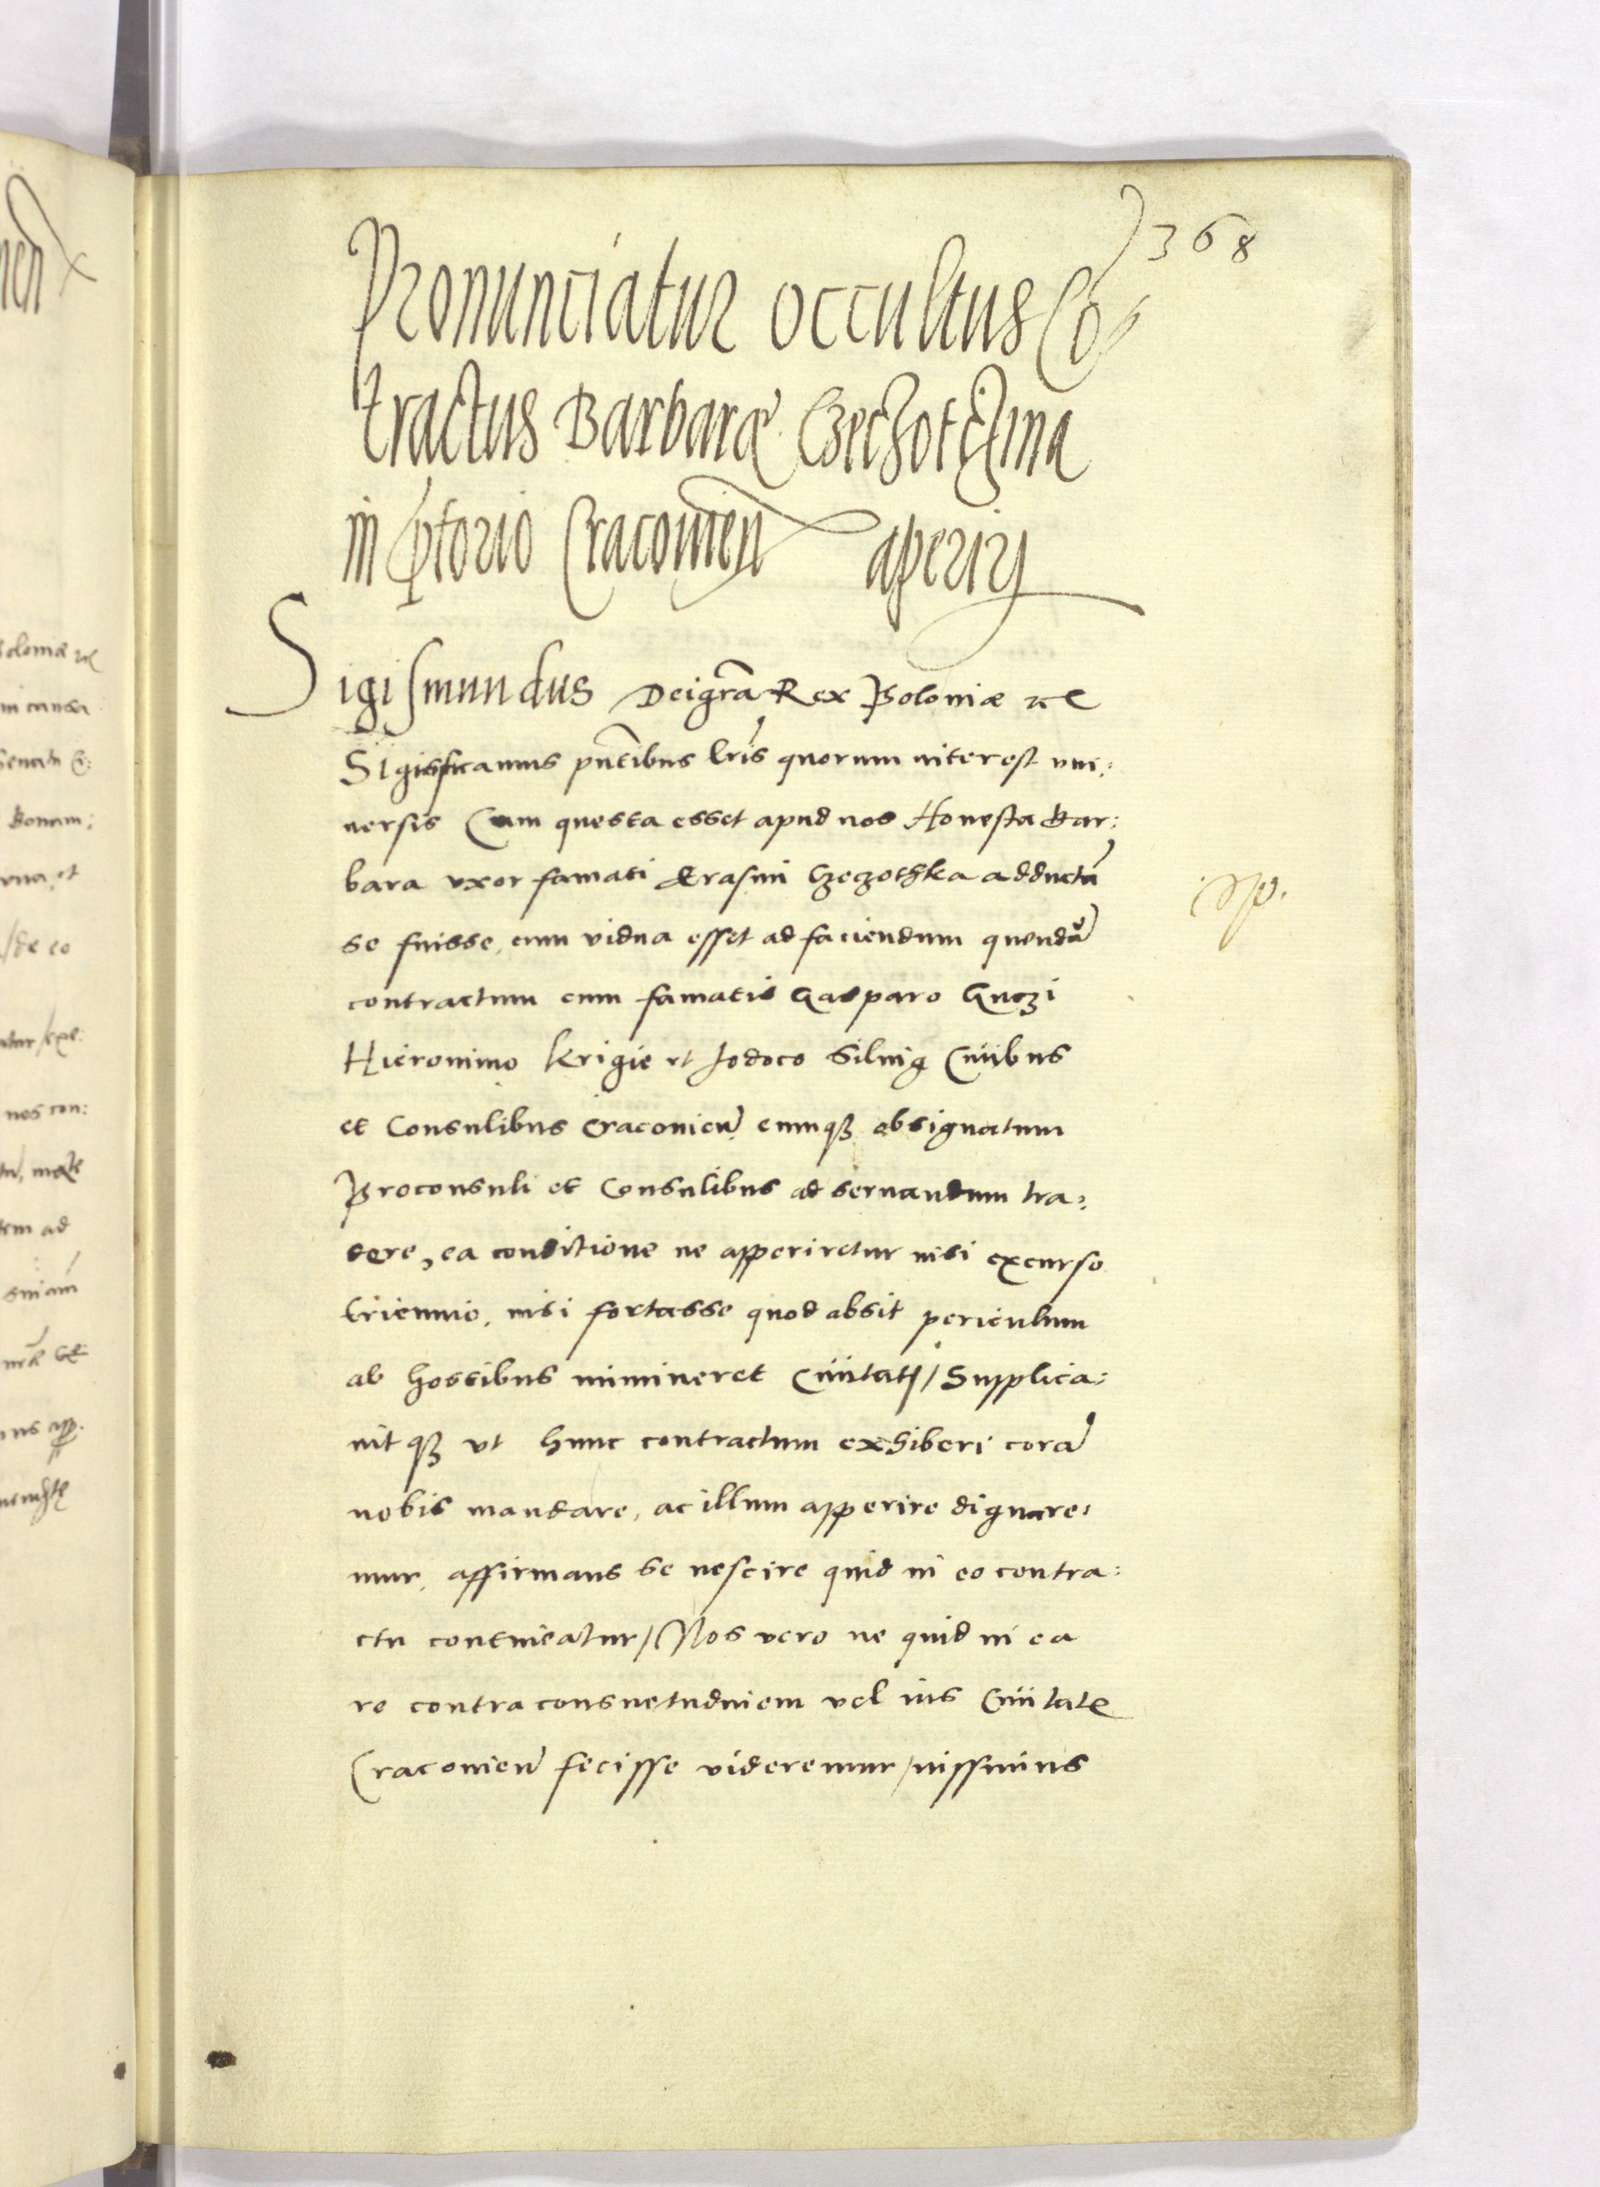 368
Pronunciatur occultus Co
tractus Barbaræ Czeczotczina
in ptorio Cracouien aperirj
Sigismundus Dei gra Rex Poloniæ
Significamus pntibus lris quorum interest vni:
uersis Cum questa esset apud nos Honesta Bar:
bara vxor famati Erasmi Czeczothka adducta
se fuisse, cum vidua esset ad faciendum quenda
contractum cum famatis Gasparo Guczi
Hieronimo Krigie et Jodoco Silnig Ciuibus
et Consulibus Cracouien eumq absignatum
Proconsuli et Consulibus ad seruandum tra:
dere, ea conditione ne apperiretur nisi excurso
triennio, nisi fortasse quod absit periculum
ab hostibus immineret Ciuitatj / Supplica:
uitq vt hunc contractum exhiberi cora
nobis mandare, ac illum apperire dignare:
mur, affirmans se nescire quid in eo contra:
ctu contineatur / Nos vero ne quid in ea
re contra consuetudinem vel ius Ciuitatis
Cracouien fecisse videremur / iussimus